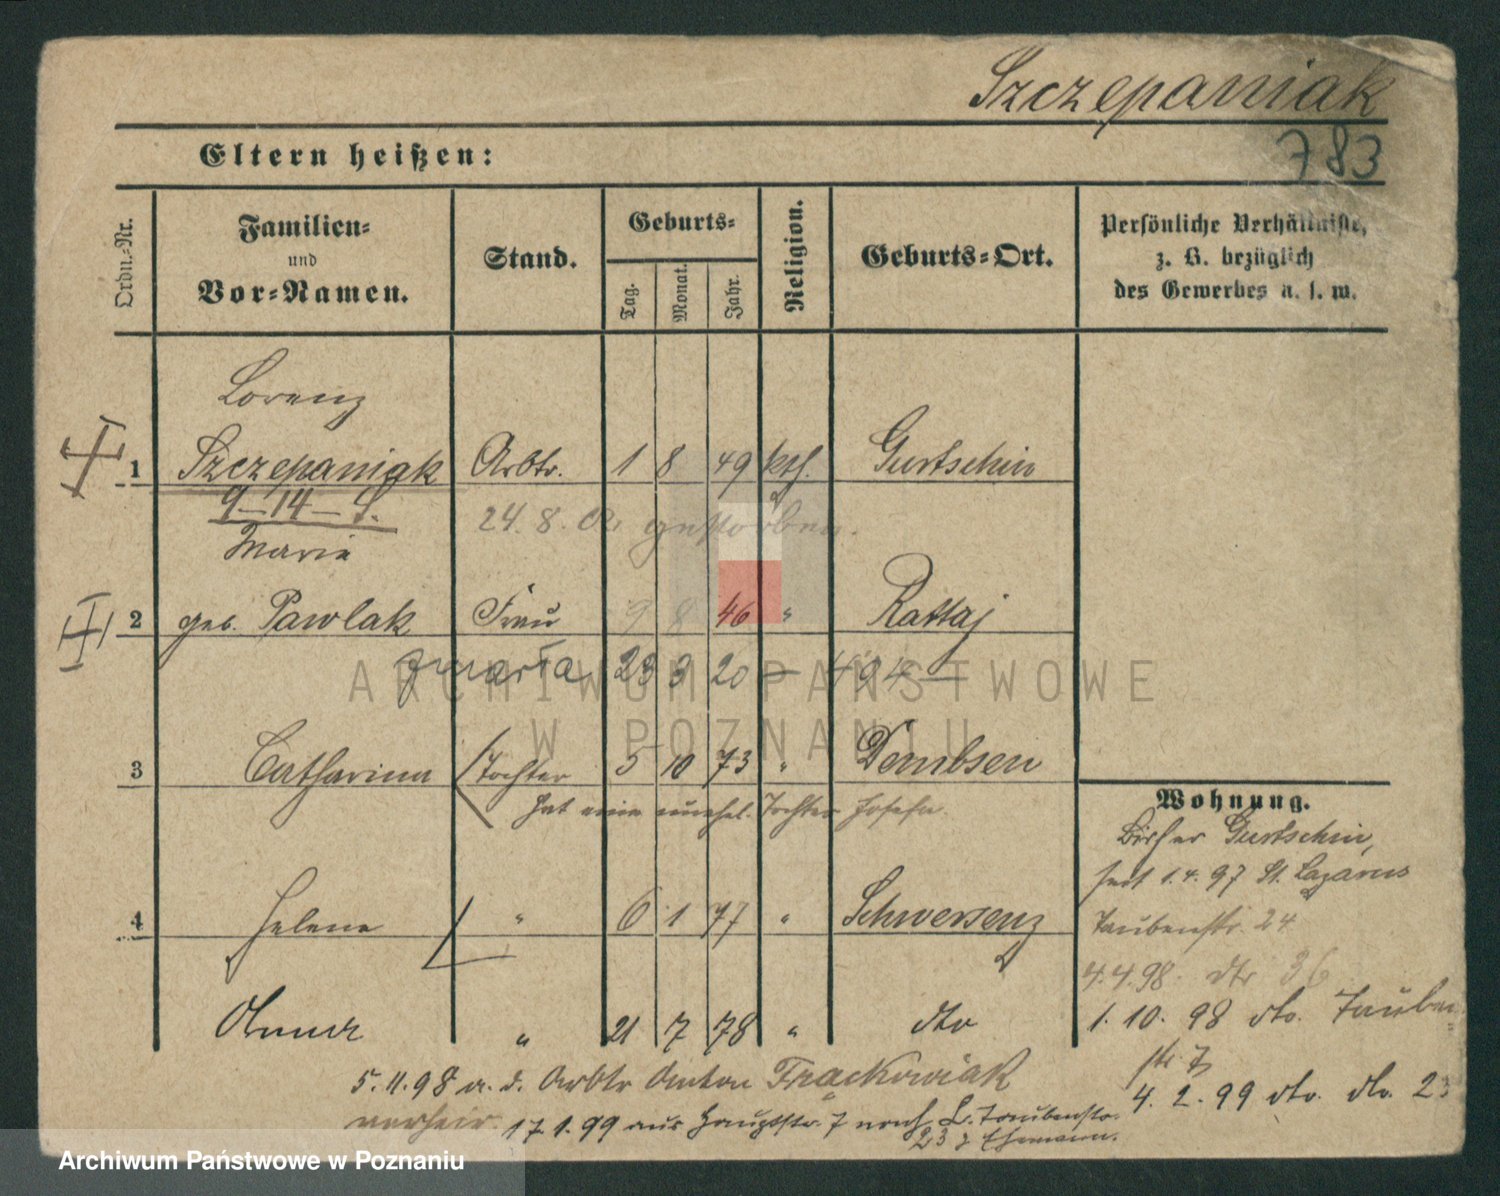 Szczepaniak
Eltern heißen:
783
Ordn.-Nr.
Familien-
und
Vor-Namen.
Stand.
Geburts-
Tag.
Monat.
Jahr.
Religion.
Geburts-Ort.
Persönliche Verhältnisse,
z. B. bezüglich
des Gewerbes u. s. w.
Lorenz
1 Szczepaniak Arbtr. 1 8 49 kth. Gurtschin
9-14-
24. 8. gestorben.
Marie
2 geb. Pawlak Frau 9 8 46 " Rattaj
zmarła 23 3 20 - 494 -
3 Catharina Tochter 5 10 73 " Dembsen
hat eine unehel. Tochter Josefa.
4 Helene " 6 1 77 " Schwersenz
Anna " 21 7 78 " dto
5.11.98 a. d. Arbtr Anton Frąckowiak
verheir. 17.1.99 aus Hauptstr. 7 nach L. Taubenstr.
23 z Ehemann.
Wohnung.
Bisher Gurtschin,
seit 1.4.97 St. Lazarus
Taubenstr. 24
4.4.98. dto 36
1.10.98 dto. Tauben-
str 7
4.2.99 dto. dto. 23
ARCHIWUM PAŃSTWOWE
W POZNANIU
Archiwum Państwowe w Poznaniu